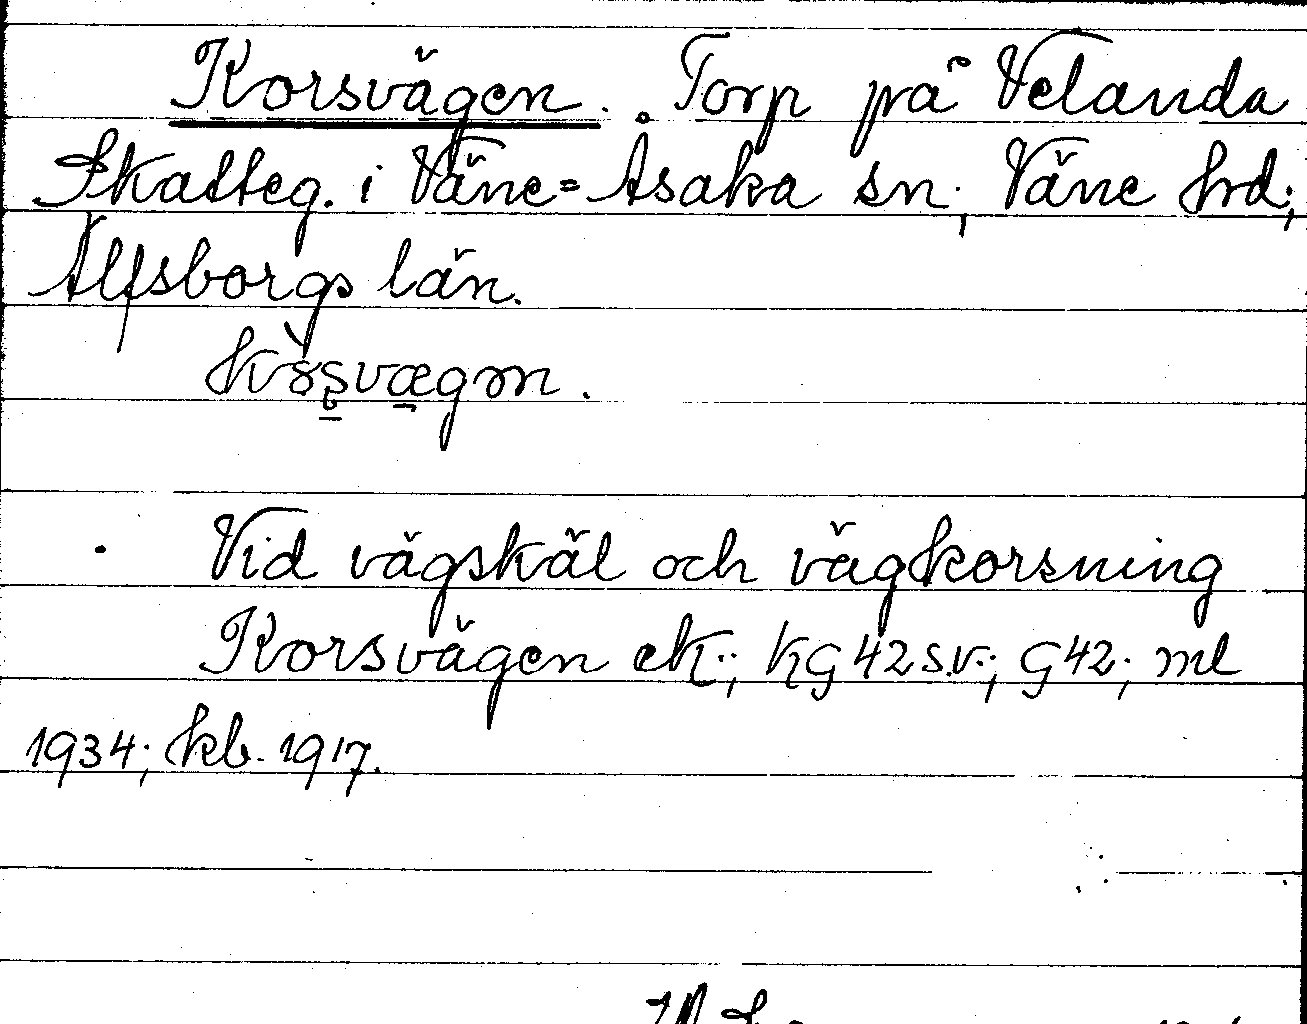 Korsvägen. Torp på Velanda
Skatteg. i Väne=Åsaka sn; Väne hrd;
Älfsborgs län.
Vid vägskäl och vägkorsning
Korsvägen ek.; KG 42 s.v.; G 42; ml
1934; kb. 1917.